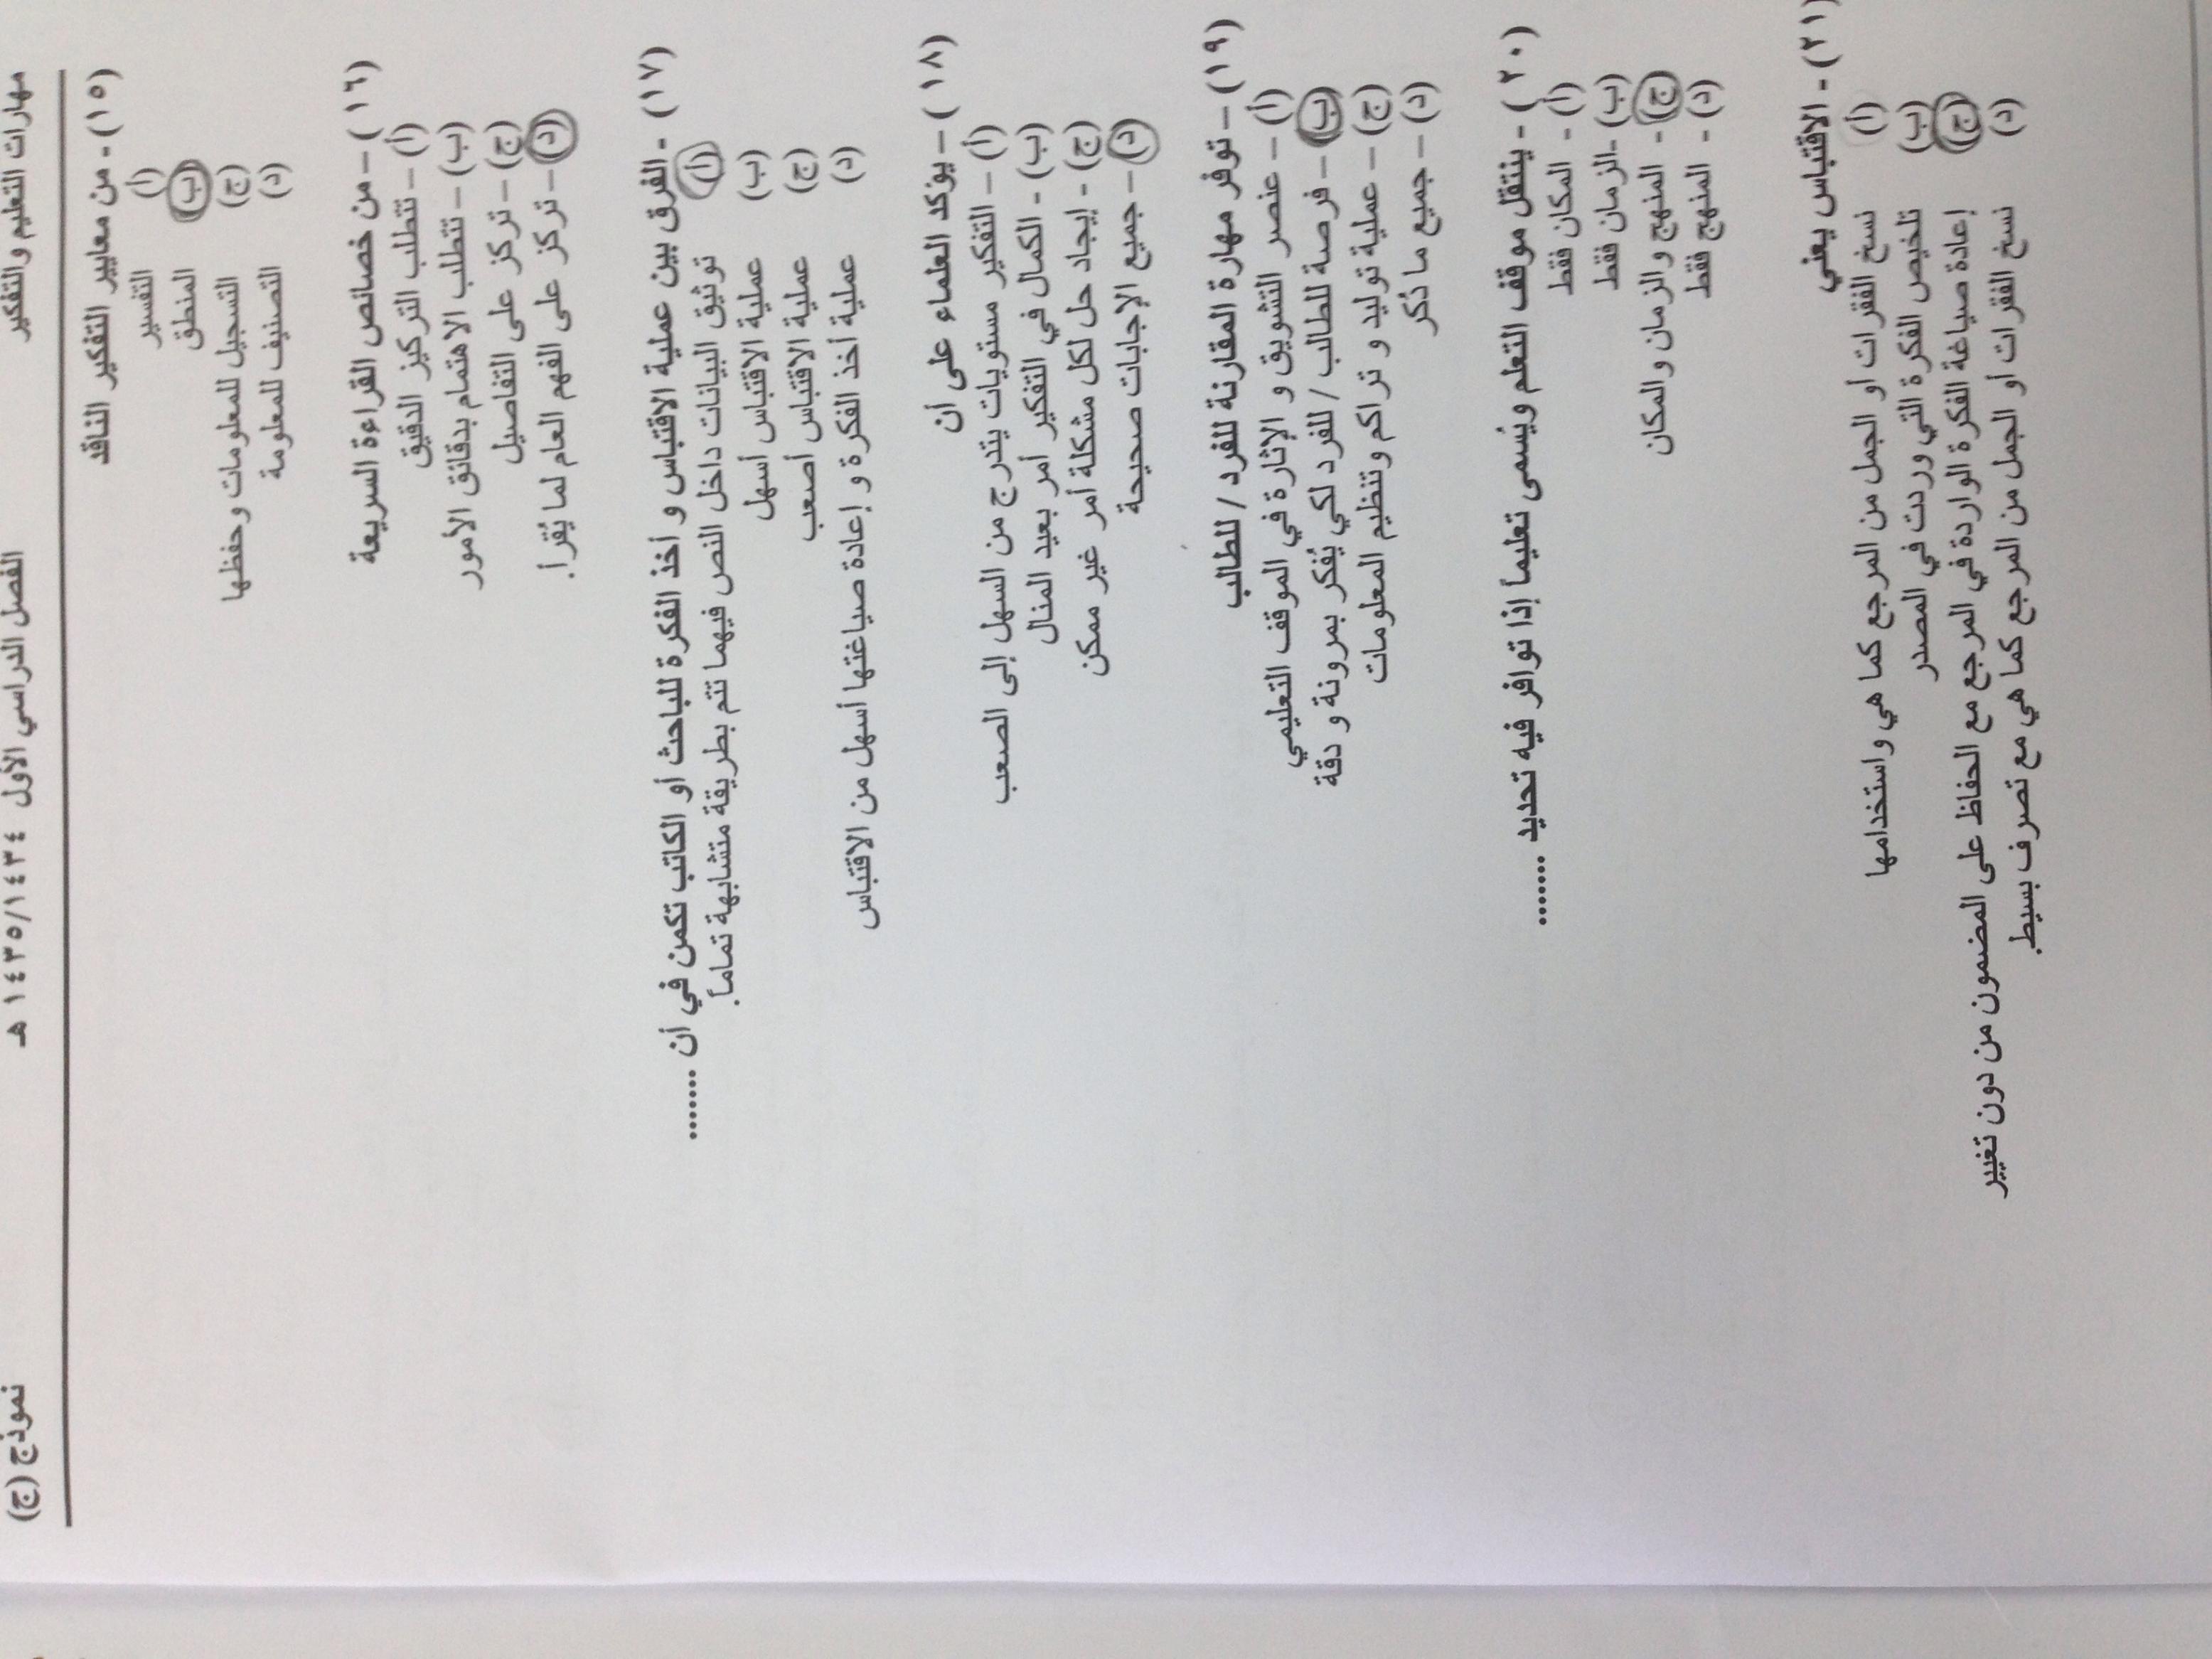 مهارات التعليم والتفكير الفصل الدراسي الأول ١٤٣٤/١٤٣٥ هـ نموذج (ج)
(١٥) - من معايير التفكير الناقد
(أ) التفسير
(ب) المنطق
(ج) التسجيل للمعلومات وحفظها
(د) التصنيف للمعلومة
(١٦) – من خصائص القراءة السريعة
(أ) – تتطلب التركيز الدقيق
(ب) – تتطلب الاهتمام بدقائق الأمور
(ج) – تركز على التفاصيل
(د) – تركز على الفهم العام لما يُقرأ.
(١٧) - الفرق بين عملية الاقتباس و أخذ الفكرة للباحث أو الكاتب تكمن في أن ........
(أ) توثيق البيانات داخل النص فيهما تتم بطريقة متشابهة تماماً.
(ب) عملية الاقتباس أسهل
(ج) عملية الاقتباس أصعب
(د) عملية أخذ الفكرة و إعادة صياغتها أسهل من الاقتباس
(١٨) – يؤكد العلماء على أن
(أ) – التفكير مستويات يتدرج من السهل إلى الصعب
(ب) - الكمال في التفكير أمر بعيد المنال
(ج) - إيجاد حل لكل مشكلة أمر غير ممكن
(د) – جميع الإجابات صحيحة
(١٩) – توفر مهارة المقارنة للفرد / للطالب
(أ) – عنصر التشويق و الإثارة في الموقف التعليمي
(ب) – فرصة للطالب / للفرد لكي يُفكر بمرونة و دقة
(ج) – عملية توليد و تراكم وتنظيم المعلومات
(د) – جميع ما ذُكر
(٢٠) - ينتقل موقف التعلم ويُسمى تعليماً إذا توافر فيه تحديد .......
(أ) - المكان فقط
(ب) -الزمان فقط
(ج) - المنهج والزمان والمكان
(د) - المنهج فقط
(٢١) - الاقتباس يعني
(أ) نسخ الفقرات أو الجمل من المرجع كما هي واستخدامها
(ب) تلخيص الفكرة التي وردت في المصدر
(ج) إعادة صياغة الفكرة الواردة في المرجع مع الحفاظ على المضمون من دون تغيير
(د) نسخ الفقرات أو الجمل من المرجع كما هي مع تصرف بسيط.